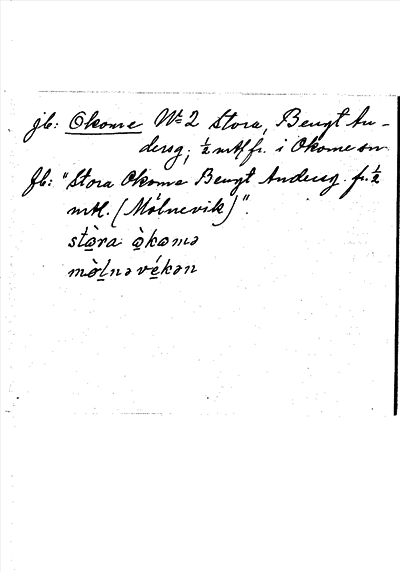 jb: Okome No 2 Stora, Bengt An-
dersg; ½ mtl fr. i Okome sn
fb: "Stora Okome Bengt Andersg. fr. ½
mtl. (Mölnevik)".
stò̱ra ò̱komə
mò̱lnəvé̱kən